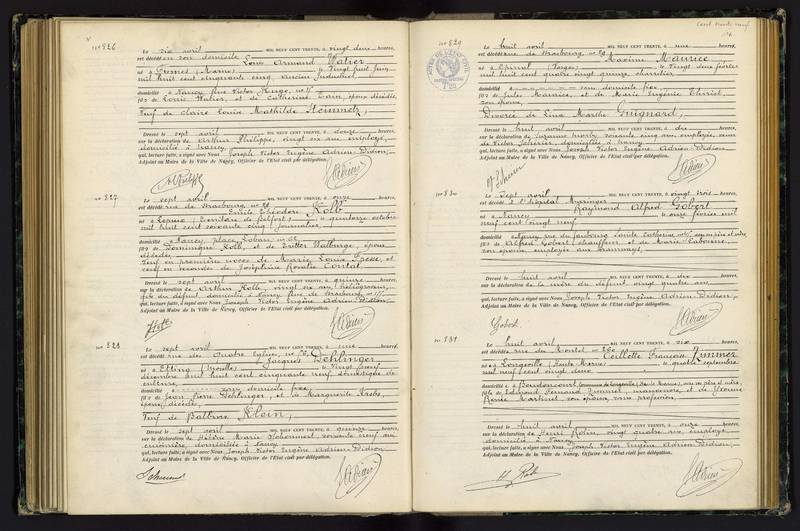 N° 826
Le six avril MIL NEUF CENT TRENTE, à vingt deux heures,
est décédé en son domicile
Louis Armand Walter
né à (Marne) le vingt huit juin
mil huit cent cinquante cinq, ancien industriel,
domicilié à Nancy, rue Victor Hugo, n°
fils de Louis Walter, et de Catherine époux décédés,
Veuf de Claire Louise Mathilde Steinmetz,
Dressé le sept avril MIL NEUF CENT TRENTE, à douze heures,
sur la déclaration de Arthur Philippe, vingt six ans, employé,
domicilié à Nancy
qui, lecture faite, a signé avec Nous Joseph Victor Eugène Adrien Didion,
Adjoint au Maire de la Ville de Nancy, Officier de l'Etat civil par délégation.
N° 827
Le sept avril MIL NEUF CENT TRENTE, à onze heures,
est décédé rue de Strasbourg n° 29
Emile Théodore Kolb
né à (Territoire de Belfort) le quatorze octobre
mil huit cent soixante cinq, journalier,
domicilié à Nancy, place Lobau n°
fils de Dominique Kolb, et de époux
décédés,
Veuf en premières noces de Marie Louise et
veuf en secondes de Joséphine Rosalie Contal
Dressé le sept avril MIL NEUF CENT TRENTE, à quinze heures,
sur la déclaration de Arthur Kolb, vingt six ans,
fils du défunt, domicilié à Nancy rue de Strasbourg n°
qui, lecture faite, a signé avec Nous Joseph Victor Eugène Adrien Didion,
Adjoint au Maire de la Ville de Nancy, Officier de l'Etat civil par délégation.
N° 828
Le sept avril MIL NEUF CENT TRENTE, à une heures,
est décédé rue des Quatre Eglises, n°
Jacques Dehlinger
né à Etting (Moselle) le vingt neuf
décembre mil huit cent cinquante neuf, domestique de
culture,
domicilié sans domicile fixe,
fils de Jean Pierre Dehlinger, et de Marguerite Krebs,
époux décédés,
Veuf de Balbine Klein,
Dressé le sept avril MIL NEUF CENT TRENTE, à quinze heures,
sur la déclaration de Hélène Marie soixante neuf ans
domiciliée à Nancy
qui, lecture faite, a signé avec Nous Joseph Victor Eugène Adrien Didion,
Adjoint au Maire de la Ville de Nancy, Officier de l'Etat civil par délégation.
Cent trente neuf
N° 829
Le huit avril MIL NEUF CENT TRENTE, à une heures,
est décédé rue de Strasbourg n° 29
Maxime Maurice
né à Epinal (Vosges) le vingt deux février
mil huit cent quatre vingt quinze, charretier
domicilié à sans domicile fixe,
fils de Jules Maurice, et de Marie Eugénie Thiriet,
son épouse,
Divorcé de Lina Marthe Guignard,
Dressé le huit avril MIL NEUF CENT TRENTE, à dix heures,
sur la déclaration de Suzanne soixante cinq ans, employée, veuve
de Victor domiciliée à Nancy
qui, lecture faite, a signé avec Nous Joseph Victor Eugène Adrien Didion,
Adjoint au Maire de la Ville de Nancy, Officier de l'Etat civil par délégation.
N° 830
Le sept avril MIL NEUF CENT TRENTE, à vingt trois heures,
est décédé à l'hôpital Maringer
Raymond Alfred Gobert
né à Nancy le onze février mil
neuf cent vingt neuf
domicilié à Nancy rue du faubourg Sainte Catherine, chez ses père et mère
fils de Alfred Gobert, chauffeur, et de Marie Labonne,
son épouse, employée aux tramways,
Dressé le huit avril MIL NEUF CENT TRENTE, à dix heures,
sur la déclaration de la mère du défunt, vingt quatre ans,
qui, lecture faite, a signé avec Nous Joseph Victor Eugène Adrien Didion,
Adjoint au Maire de la Ville de Nancy, Officier de l'Etat civil par délégation.
Gobert
N° 831
Le huit avril MIL NEUF CENT TRENTE, à six heures,
est décédé rue du Montet n°
Collette Françoise Zimmer
né à Longeville (Haute Marne) le quatre septembre
mil neuf cent vingt deux
domicilié à Boudoncourt (commune de Longeville) (Haute Marne) chez ses père et mère,
fille de Edmond Fernand Zimmer, manœuvre, et de Yvonne
Renée Martinet, son épouse, sans profession,
Dressé le huit avril MIL NEUF CENT TRENTE, à onze heures,
sur la déclaration de Henri Robin, vingt quatre ans, employé
domicilié à Nancy
qui, lecture faite, a signé avec Nous Joseph Victor Eugène Adrien Didion,
Adjoint au Maire de la Ville de Nancy, Officier de l'Etat civil par délégation.